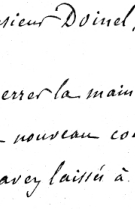 sieur Doinel,
errer la main
nouveau co
avez laissée à